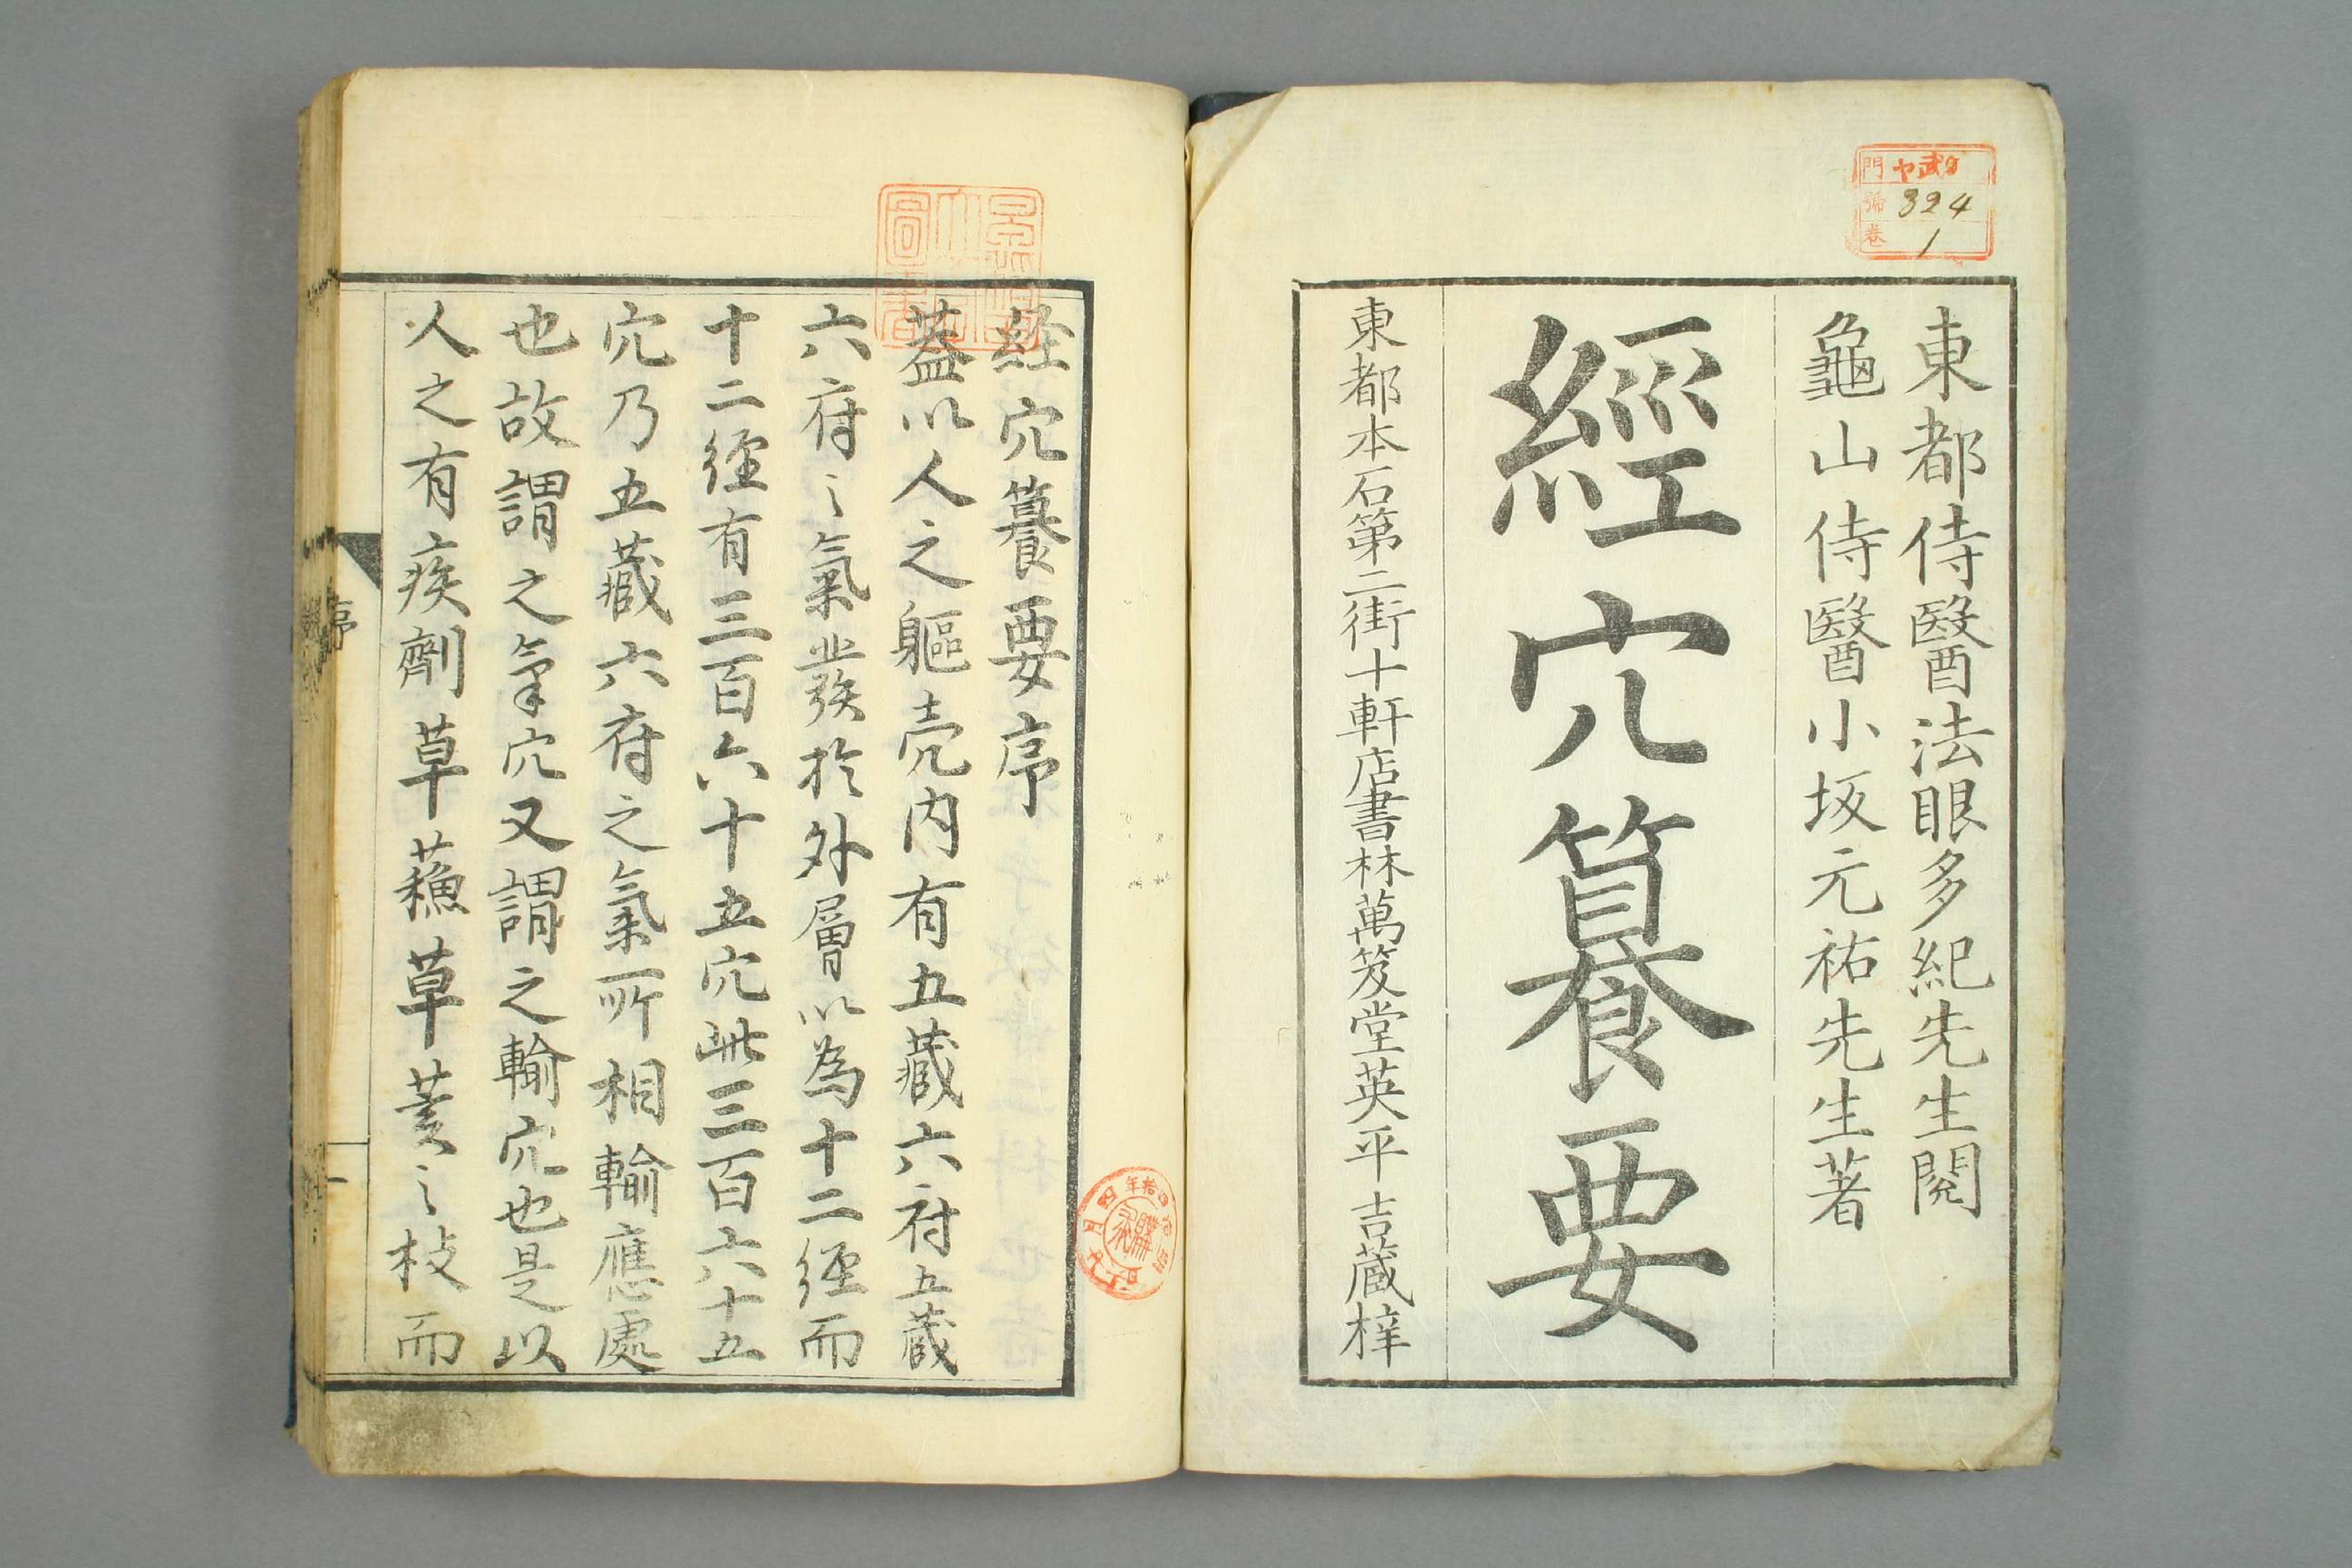 東都侍醫法眼多紀先生閱
龜山侍醫小坂元祐先生著
經穴纂要
東都本石第二街十軒店書林萬笈堂英平吉藏梓
門 ヤ武
號 324
卷 1
経穴纂要序
蓋以人之軀壳内有五藏六府五藏
六府之氣並發於外層以為十二經而
十二經有三百六十五穴此三百六十五
穴乃五藏六府之氣所相輸應處
也故謂之氣穴又謂之輸穴也是以
人之有疾劑草蘓草荄之枝而
序
一